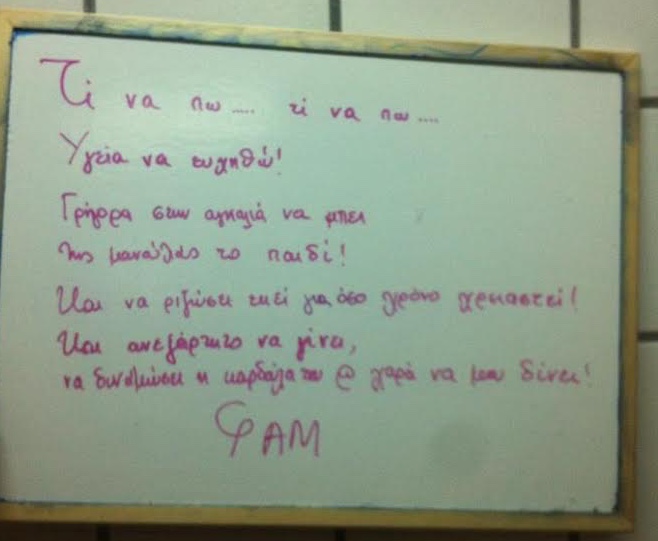 Τι να πω..... τι να πω....
Υγεία να ευχηθώ!
Γρήγορα στην αγκαλιά να μπει
της μανούλας το παιδί!
Και να ριζώσει εκεί για όσο χρόνο χρειαστεί!
Και ανεξάρτητο να γίνει,
να δυναμώσει η καρδούλα του @ χαρά να μου δίνει!
ΦΑΜ